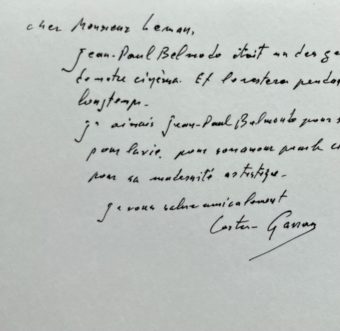 cher Monsieur Leman,
Jean-Paul Belmondo était un des
de notre cinéma. Et le restera
longtemps.
j'aimais Jean-Paul Belmondo pour
pour la vie, pour son amour
pour sa modernité artistique.
je vous salue amicalement
Costa Gavras